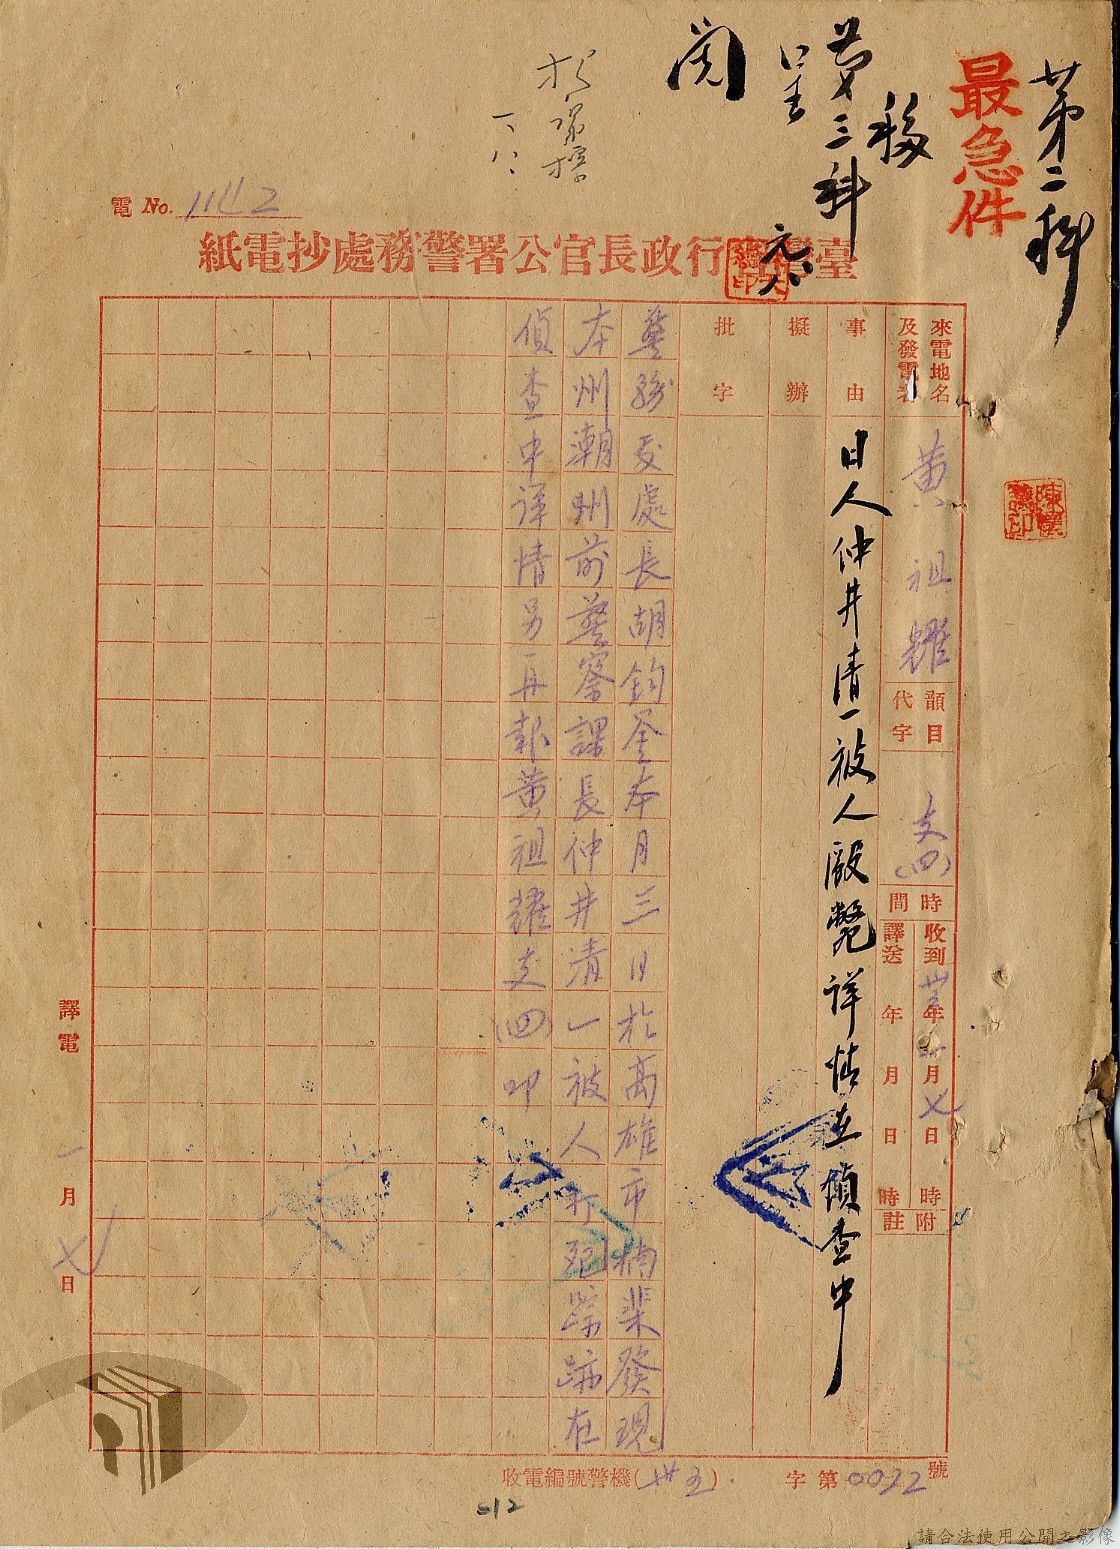 第二科
最急件
移
第三科
閱
電 No. 1142
臺灣省行政長官公署警務處抄電紙
來電地名及發電者
黃祖耀
韻目代字
支(四)
時間
收到 卅五年一月七日 時
譯送 年 月 日 時
附註
事由
日人仲井清一被人毆斃詳情在偵查中
擬辦
批字
警務處處長胡鈞鑒本月三日於高雄市楠梓發現
本州潮州前警察課長仲井清一被人打死踪跡在
偵查中詳情另再報黃祖耀支(四)叩
譯電 一月七日
收電編號警機(卅五) 字第0022號
012
請合法使用公開之影像